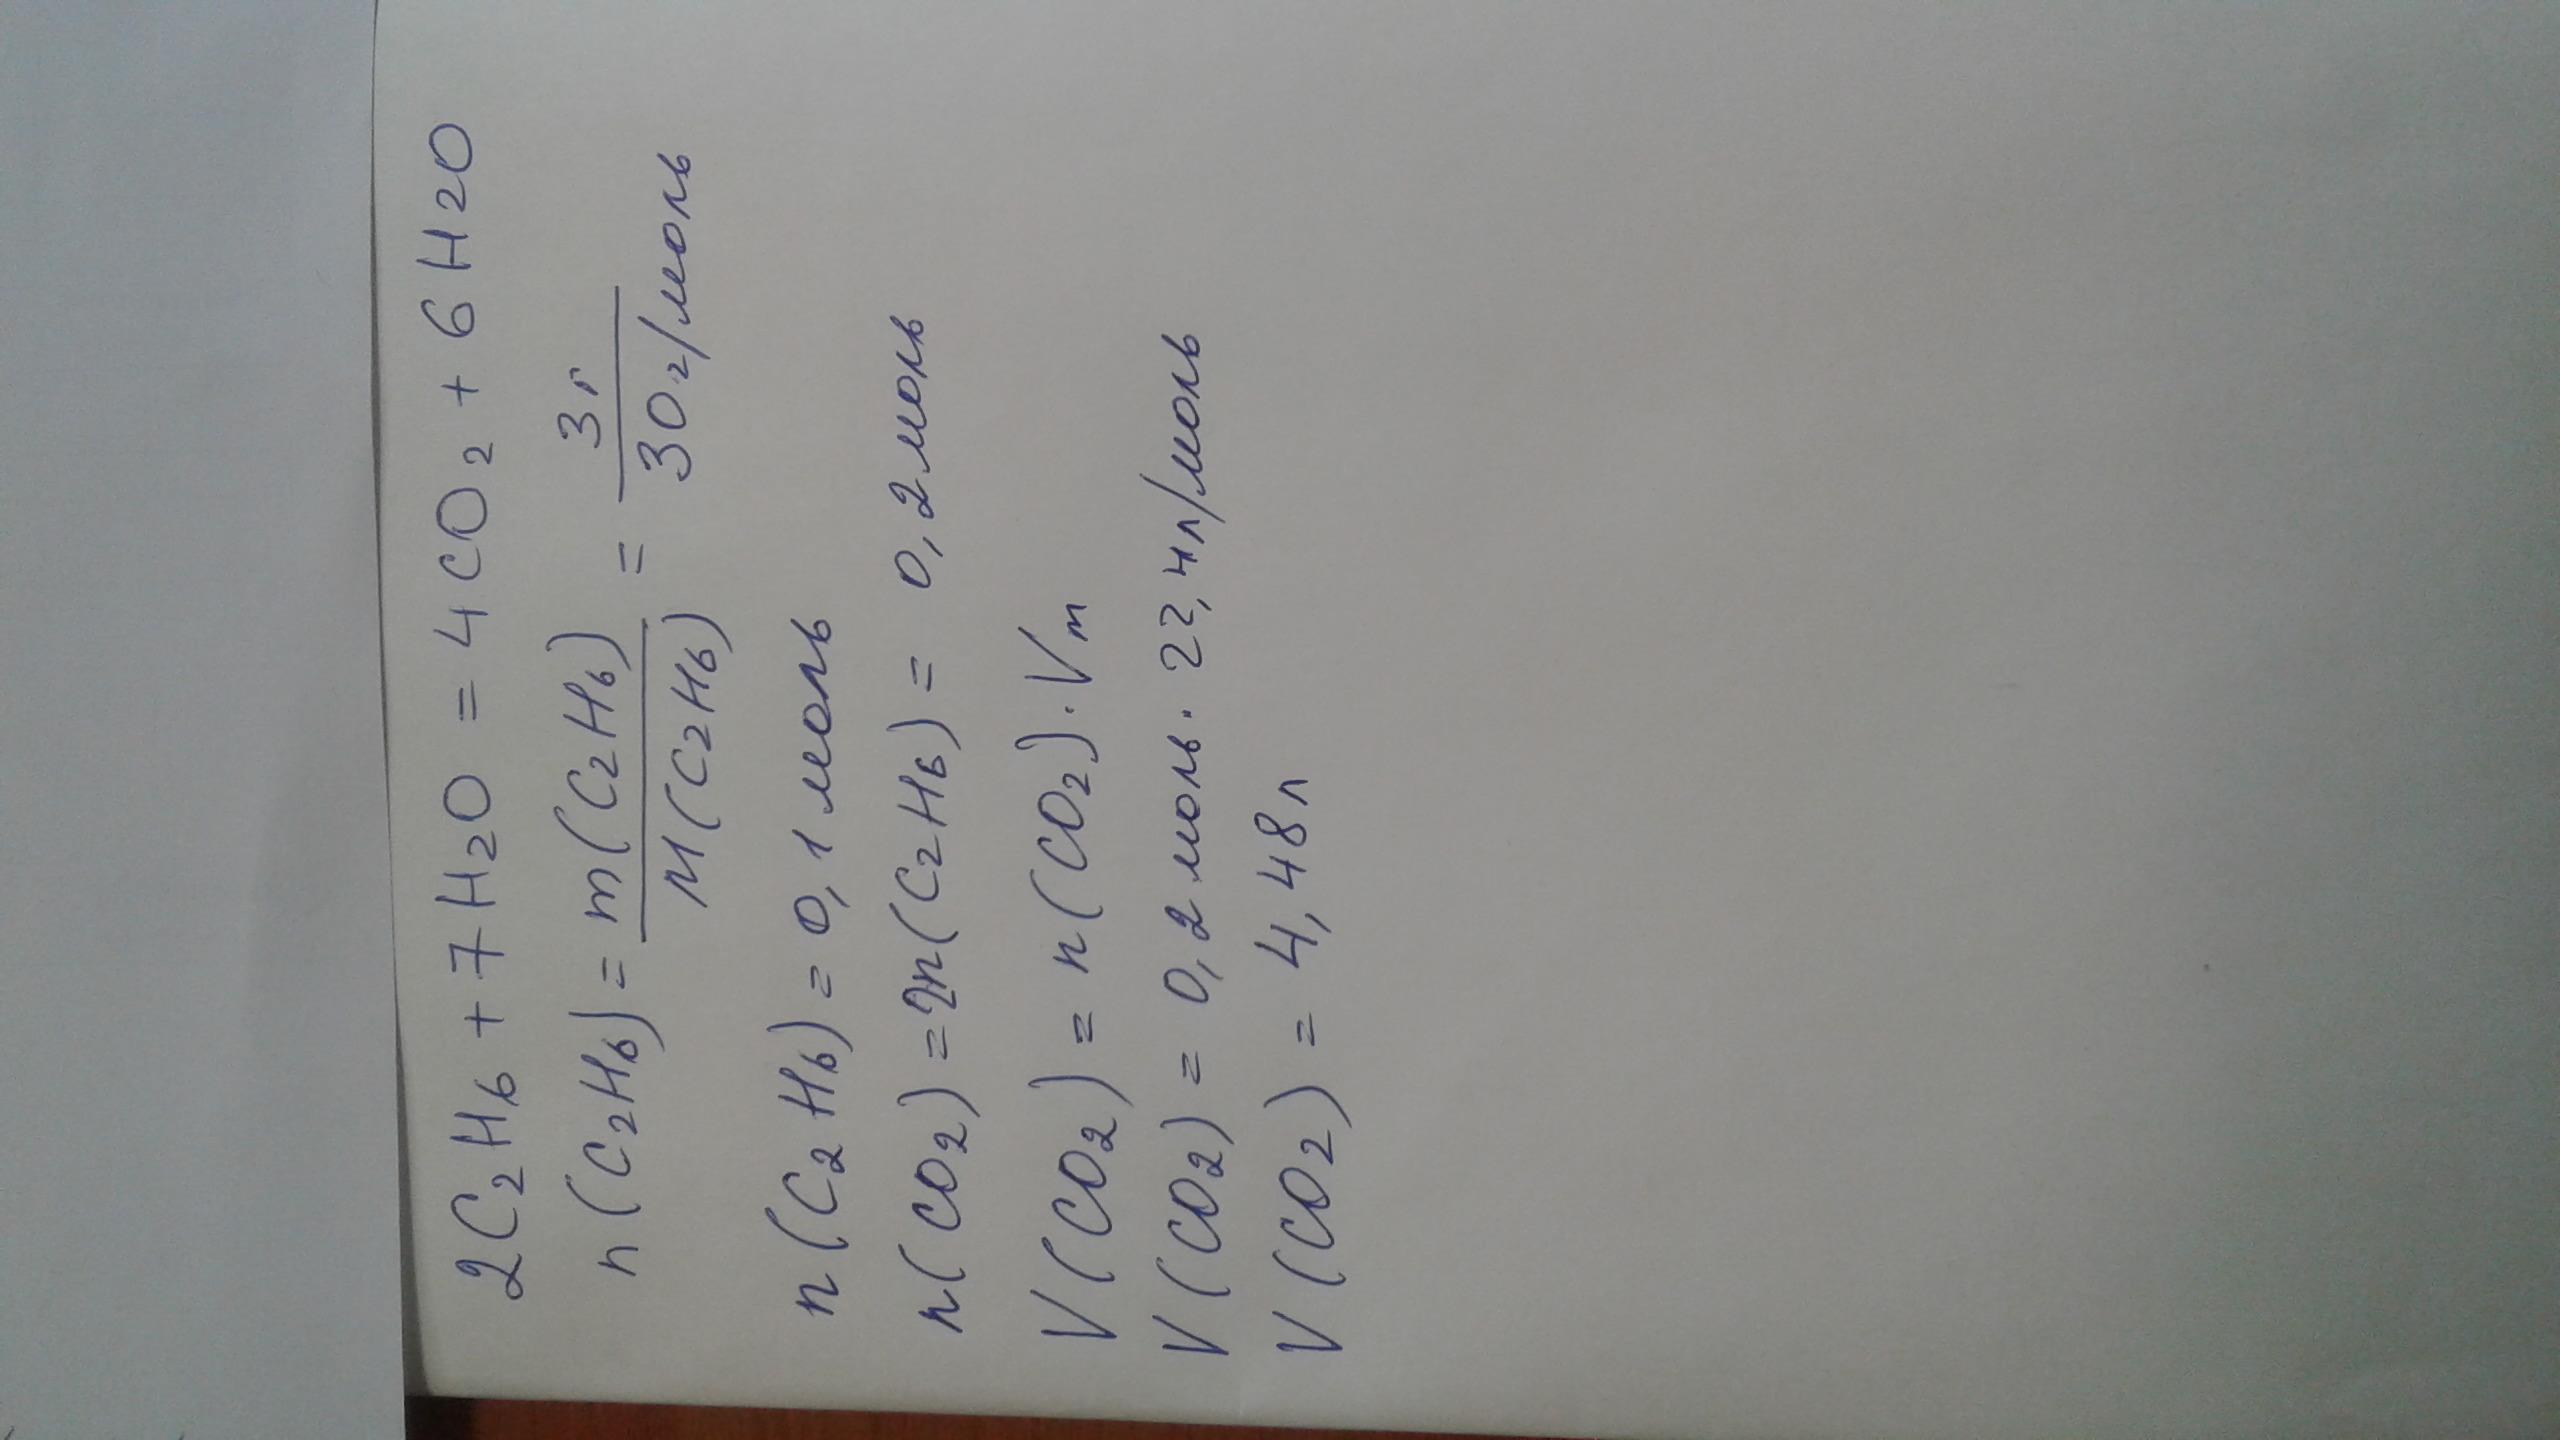 2C₂H₆ + 7H₂O = 4CO₂ + 6H₂O
n(C₂H₆) = m(C₂H₆) / M(C₂H₆) = 3г / 30г/моль
n(C₂H₆) = 0,1 моль
n(CO₂) = 2n(C₂H₆) = 0,2 моль
V(CO₂) = n(CO₂) · Vm
V(CO₂) = 0,2 моль · 22,4л/моль
V(CO₂) = 4,48л